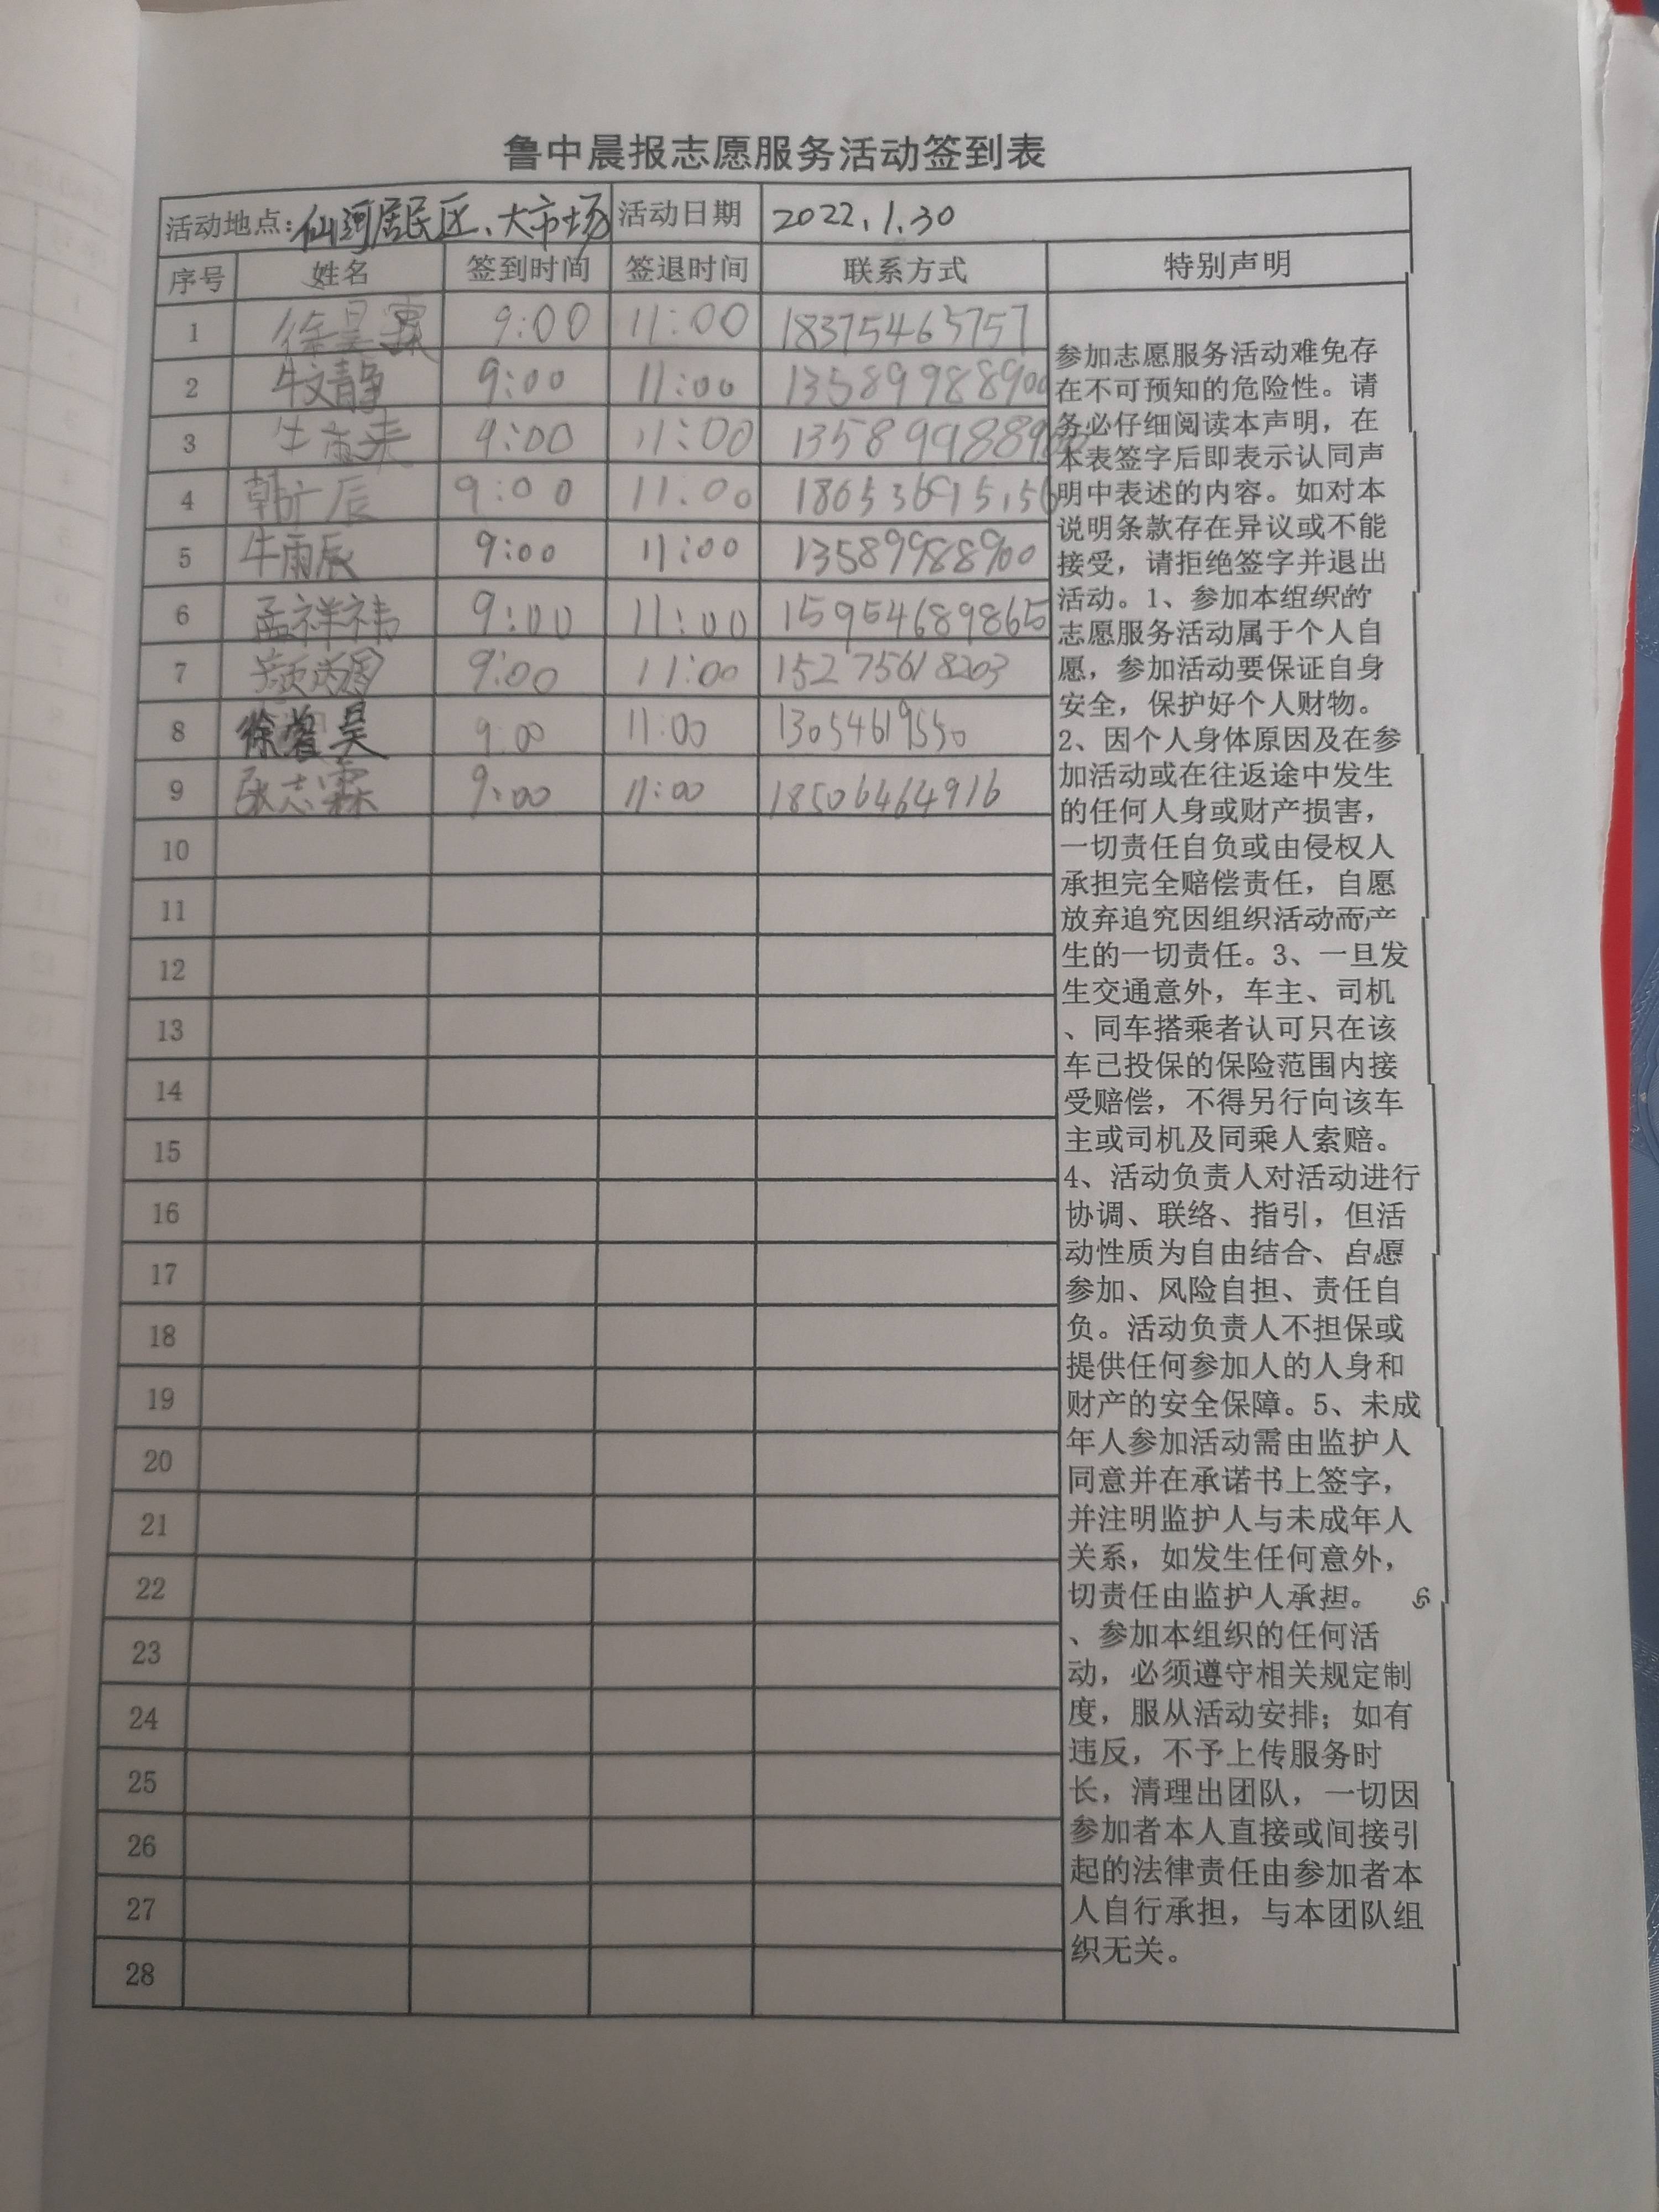 鲁中晨报志愿服务活动签到表
活动地点:仙河居民区、大市场 活动日期 2022.1.30
序号 姓名 签到时间 签退时间 联系方式 特别声明
1 徐昊霖 9:00 11:00 18375463757
2 牛文静 9:00 11:00 13589988900
3 9:00 11:00
4 韩广辰 9:00 11:00
5 牛雨辰 9:00 11:00 13589988900
6 孟祥祎 9:00 11:00 15954689865
7 9:00 11:00 15275618203
8 9:00 11:00 13054619550
9 张志霖 9:00 11:00 18506464916
10
11
12
13
14
15
16
17
18
19
20
21
22
23
24
25
26
27
28
参加志愿服务活动难免存
在不可预知的危险性。请
务必仔细阅读本声明，在
本表签字后即表示认同声
明中表述的内容。如对本
说明条款存在异议或不能
接受，请拒绝签字并退出
活动。1、参加本组织的
志愿服务活动属于个人自
愿，参加活动要保证自身
安全，保护好个人财物。
2、因个人身体原因及在参
加活动或在往返途中发生
的任何人身或财产损害，
一切责任自负或由侵权人
承担完全赔偿责任，自愿
放弃追究因组织活动而产
生的一切责任。3、一旦发
生交通意外，车主、司机
、同车搭乘者认可只在该
车已投保的保险范围内接
受赔偿，不得另行向该车
主或司机及同乘人索赔。
4、活动负责人对活动进行
协调、联络、指引，但活
动性质为自由结合、自愿
参加、风险自担、责任自
负。活动负责人不担保或
提供任何参加人的人身和
财产的安全保障。5、未成
年人参加活动需由监护人
同意并在承诺书上签字，
并注明监护人与未成年人
关系，如发生任何意外，
切责任由监护人承担。 6
、参加本组织的任何活
动，必须遵守相关规定制
度，服从活动安排；如有
违反，不予上传服务时
长，清理出团队，一切因
参加者本人直接或间接引
起的法律责任由参加者本
人自行承担，与本团队组
织无关。